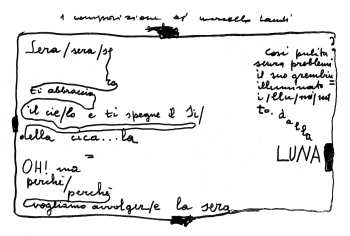 1 composizione di marcello landi
Sera/sera/se
ra
ti abbraccia
il cie/lo e ti spegne il Si/
della cica...la
OH! ma
perchè/
perchè
vogliamo avvolger/e la sera
così pulita
senza problemi
il suo grembiu
illuminato
i/llu/mi/na
to. dalla
LUNA